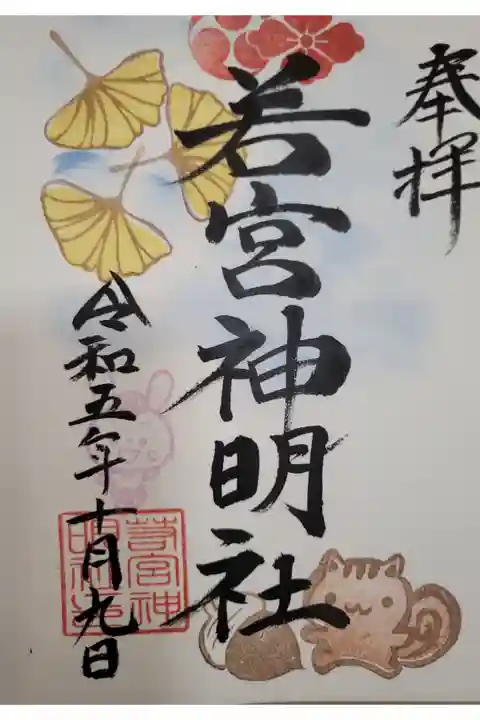 奉拝
若宮神明社
令和五年十月九日
若宮神
明社印